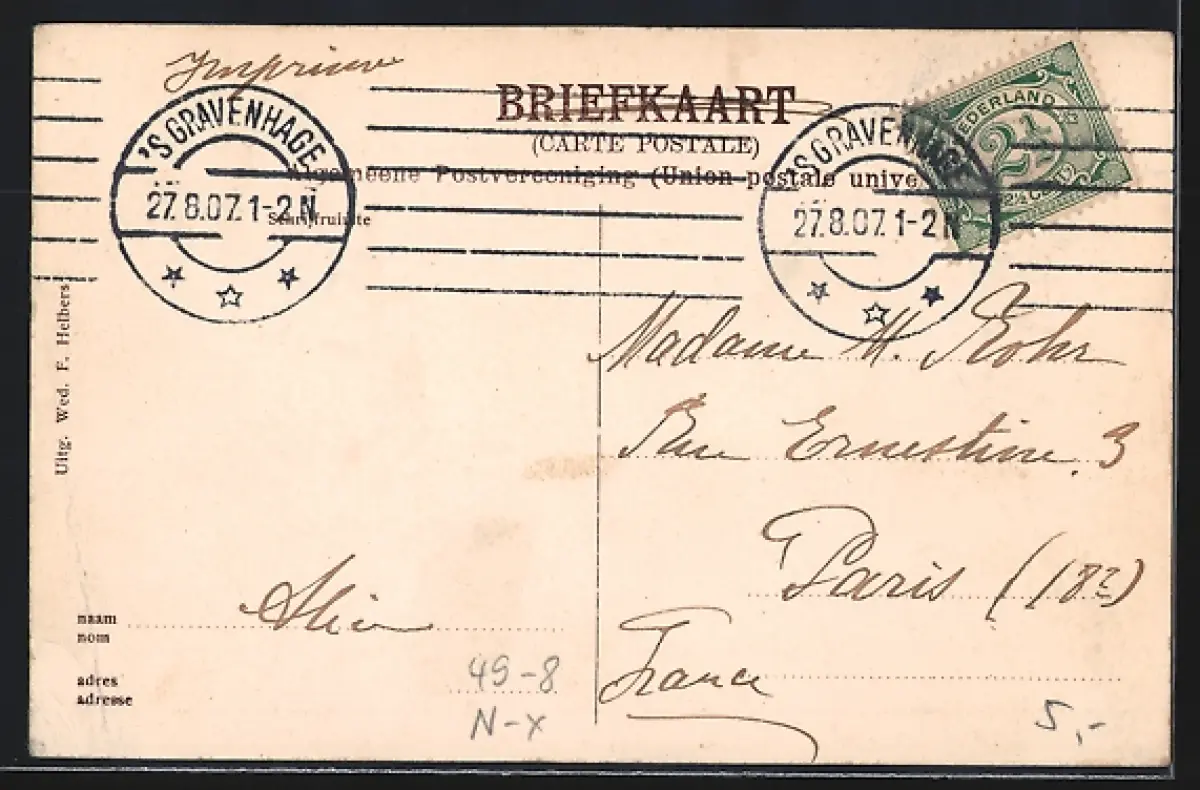 Imprimé
BRIEFKAART
(CARTE POSTALE)
Algemeene Postvereeniging (Union postale unive
Schrijfruimte
'S GRAVENHAGE
27.8.07.1-2 N
'S GRAVENHAGE
27.8.07.1-2 N
NEDERLAND
2½
2½ CENT
Uitg. Wed. F. Helbers
Madame M. Rohr
Rue Ernestine. 3
Paris (18e)
France
naam
nom
adres
adresse
49-8
N-x
5,-